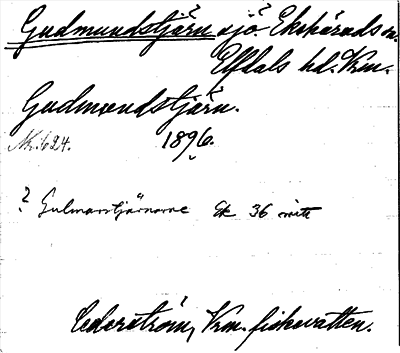 Gudmundstjärn sjö. Ekshärads sn.
Elfdals hd. Vrm.
Gudmundstjärn.
Nr. 624. 1896.
? Gulmanstjärnarne Ek 36 mitt
Cederström, Vrm. fiskevatten.